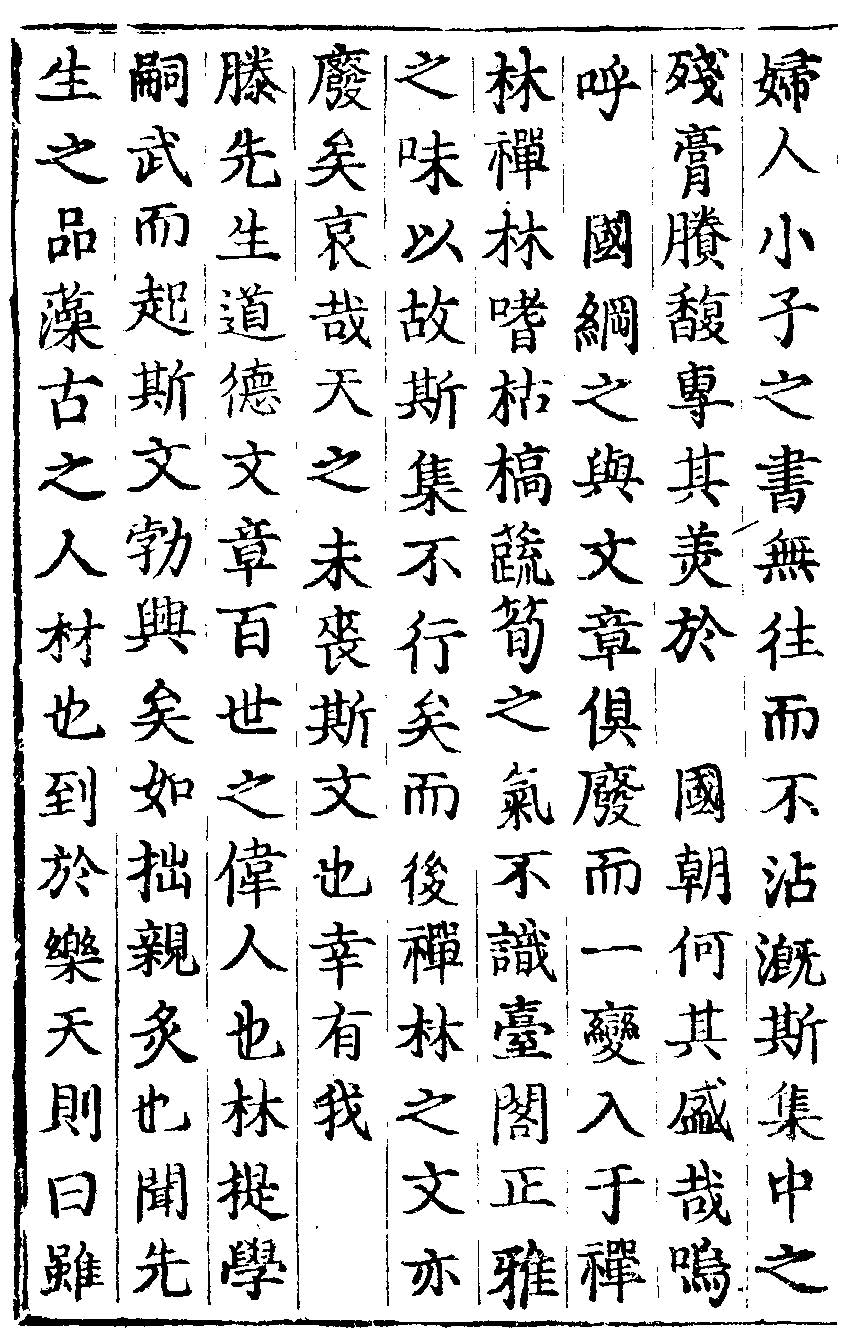 婦人小子之書無往而不沾漑斯集中之
殘膏賸馥專其美於　國朝何其盛哉嗚
呼　國綱之與文章俱廢而一變入于禪
林禪林嗜枯槁蔬筍之氣不識臺閣正雅
之味以故斯集不行矣而後禪林之文亦
廢矣哀哉天之未喪斯文也幸有我
滕先生道德文章百世之偉人也林提學
嗣武而起斯文勃興矣如拙親炙也聞先
生之品藻古之人材也到於樂天則曰雖